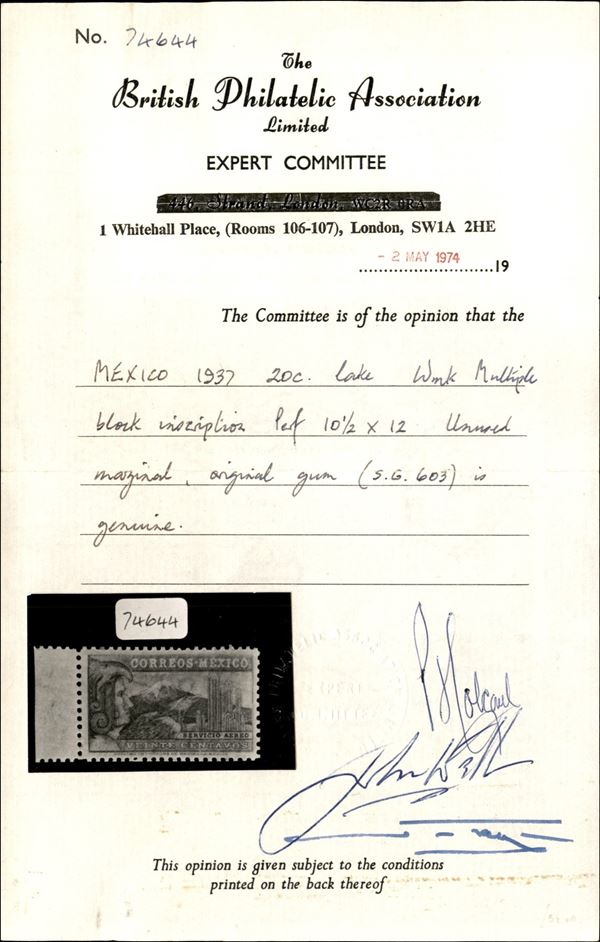 No. 74644
The
British Philatelic Association
Limited
EXPERT COMMITTEE
446, Strand, London, WC2R 0RA
1 Whitehall Place, (Rooms 106-107), London, SW1A 2HE
- 2 MAY 1974
19
The Committee is of the opinion that the
MEXICO 1937 20c. lake Wmk Multiple
block inscription Perf 10½ x 12 Unused
marginal, original gum (S.G. 603) is
genuine.
74644
CORREOS·MEXICO
SERVICIO AEREO
VEINTE CENTAVOS
This opinion is given subject to the conditions
printed on the back thereof